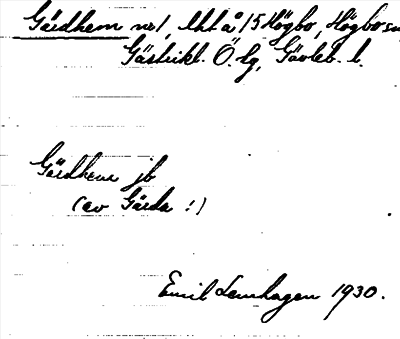 Gärdhem nr 1, lht å 15 Högbo, Högbo sn
Gästrikl. Ö. tg, Gävleb. l.
Gärdhem jb
(av Gärda !)
Emil Lenhagen 1930.